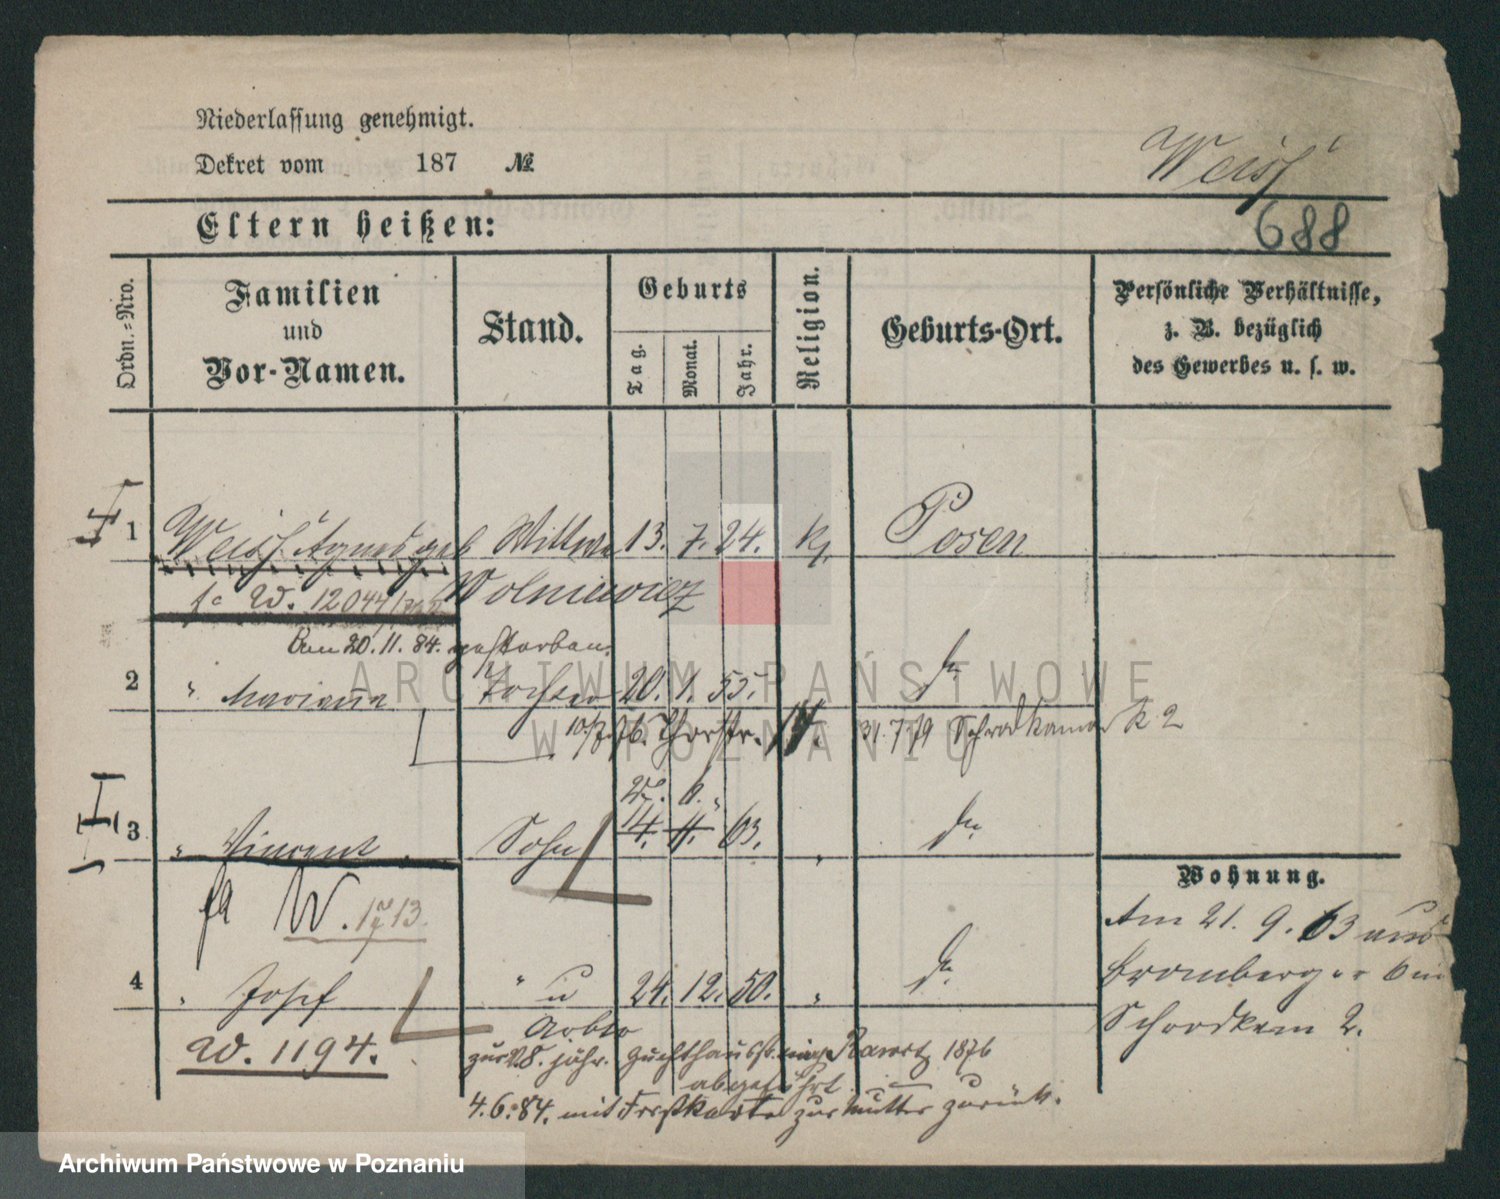 Niederlassung genehmigt.
Dekret vom 187 №
Weiss
688
Eltern heißen:
Ordn.-Nro.
Familien und Vor-Namen.
Stand.
Geburts
Tag.
Monat.
Jahr.
Religion.
Geburts-Ort.
Persönliche Verhältnisse,
z. B. bezüglich
des Gewerbes u. s. w.
1 Weiss Agnes geb Wittwe 13. 7. 24. k. Posen
W. 12044 Wolniewicz
Am 20. 11. 84. gestorben.
2 " Marianna Tochter 20. 1. 55. do
10/7 76. Thorstr. 14. 31.7.79 Schrodkamar k 2
27. 6.
3 " Vincent Sohn 14. 11. 63. " do
W. 1713.
Wohnung.
Am 21. 9. 63 aus
Bromberger
Schrodkam 2.
4 " Josef " u 24. 12. 50. " do
Arbtr
W. 1194. zur 8. jähr. Zuchthausst. Rawitz 1876
abgeführt
4.6.84. mit zur Mutter zurück.
ARCHIWUM PAŃSTWOWE
W POZNANIU
Archiwum Państwowe w Poznaniu